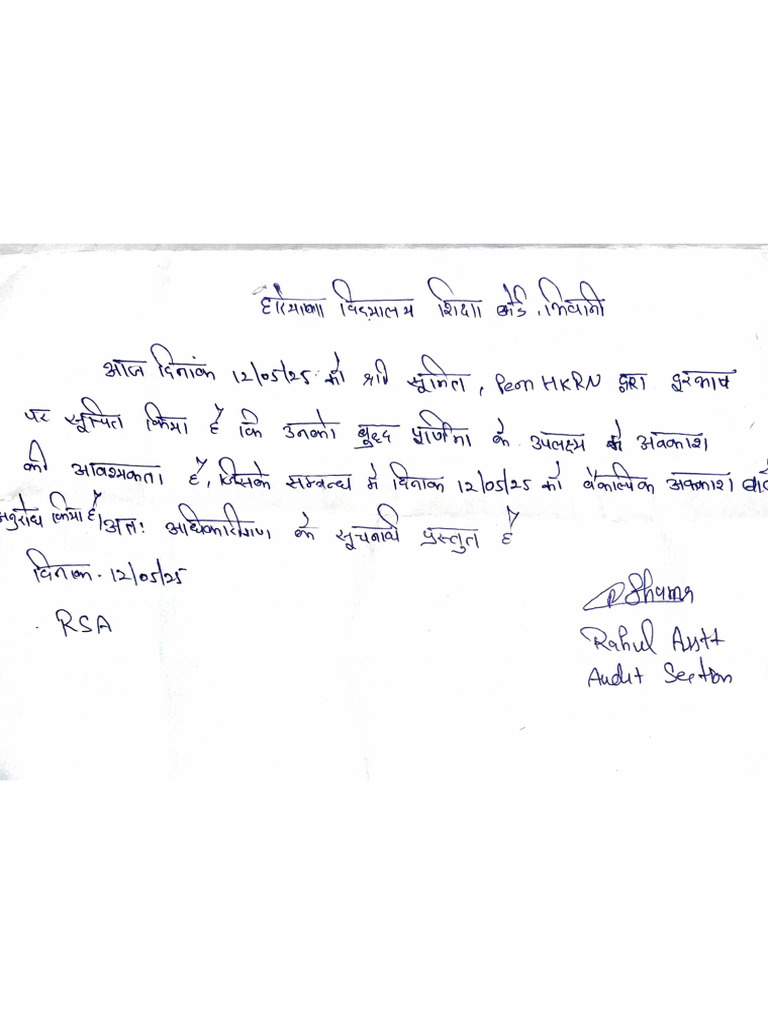 हरियाणा विद्यालय शिक्षा बोर्ड, भिवानी
आज दिनांक 12/05/25 को श्री सुमित, Peon HKRN द्वारा दूरभाष
पर सूचित किया है कि उनको बुद्ध पूर्णिमा के उपलक्ष्य में अवकाश
की आवश्यकता है, जिसके सम्बन्ध में दिनांक 12/05/25 को वैकल्पिक अवकाश बारे
अनुरोध किया है। अतः अधिकारीगण के सूचनार्थ प्रस्तुत है
दिनांक. 12/05/25
RSA
RSharma
Rahul Asstt
Audit Section